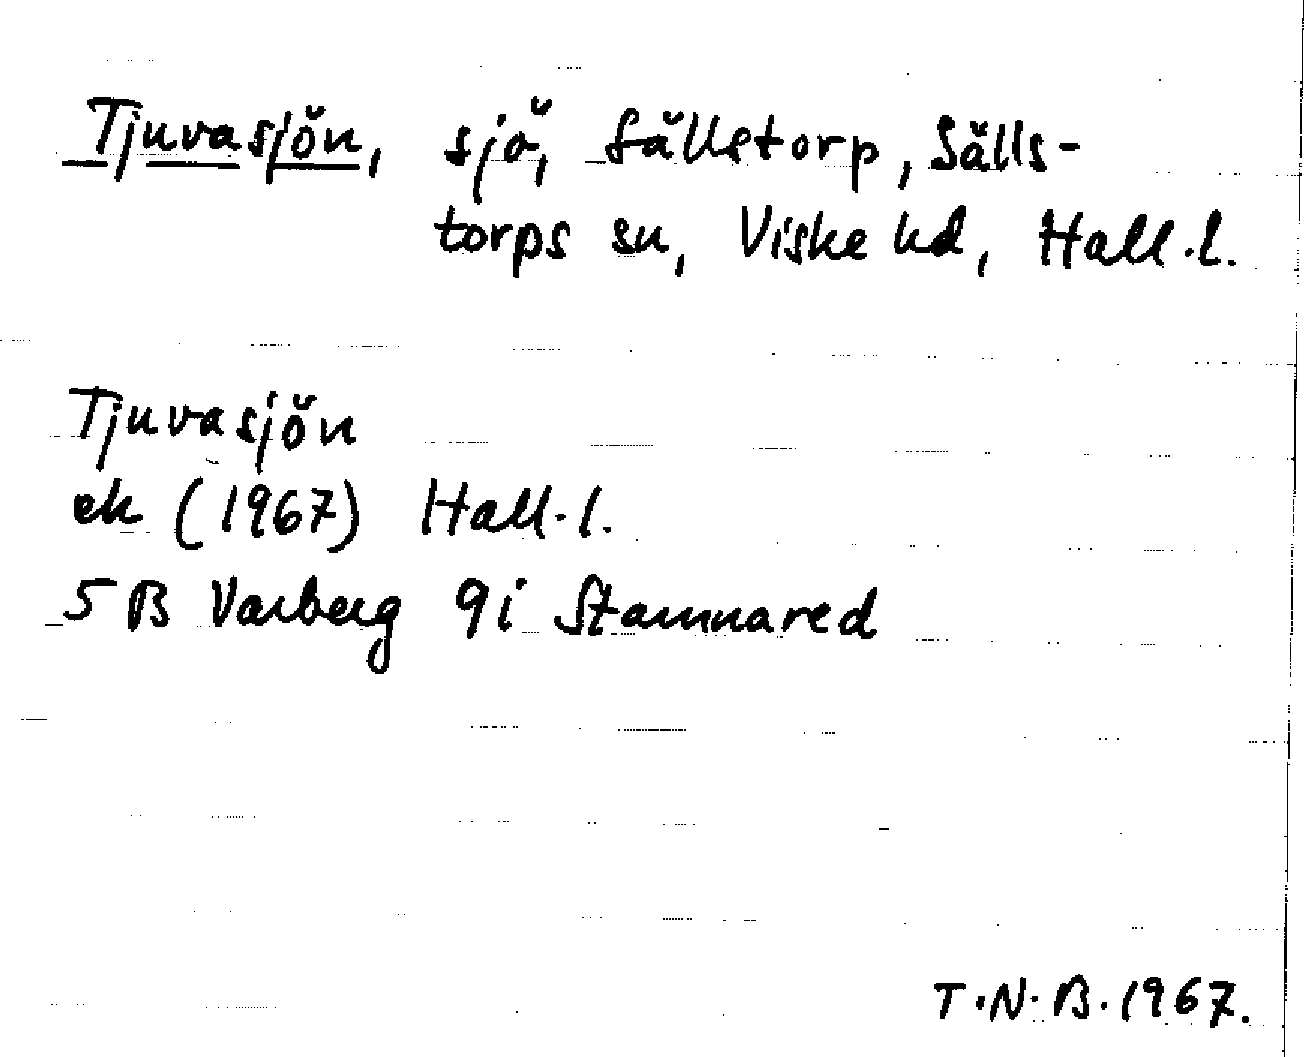 Tjuvasjön, sjö, Sällstorp, Sälls-
torps sn, Viske hd, Hall.l.
Tjuvasjön
ek (1967) Hall.l.
5B Varberg 9i Stamnared
T.N.B.1967.